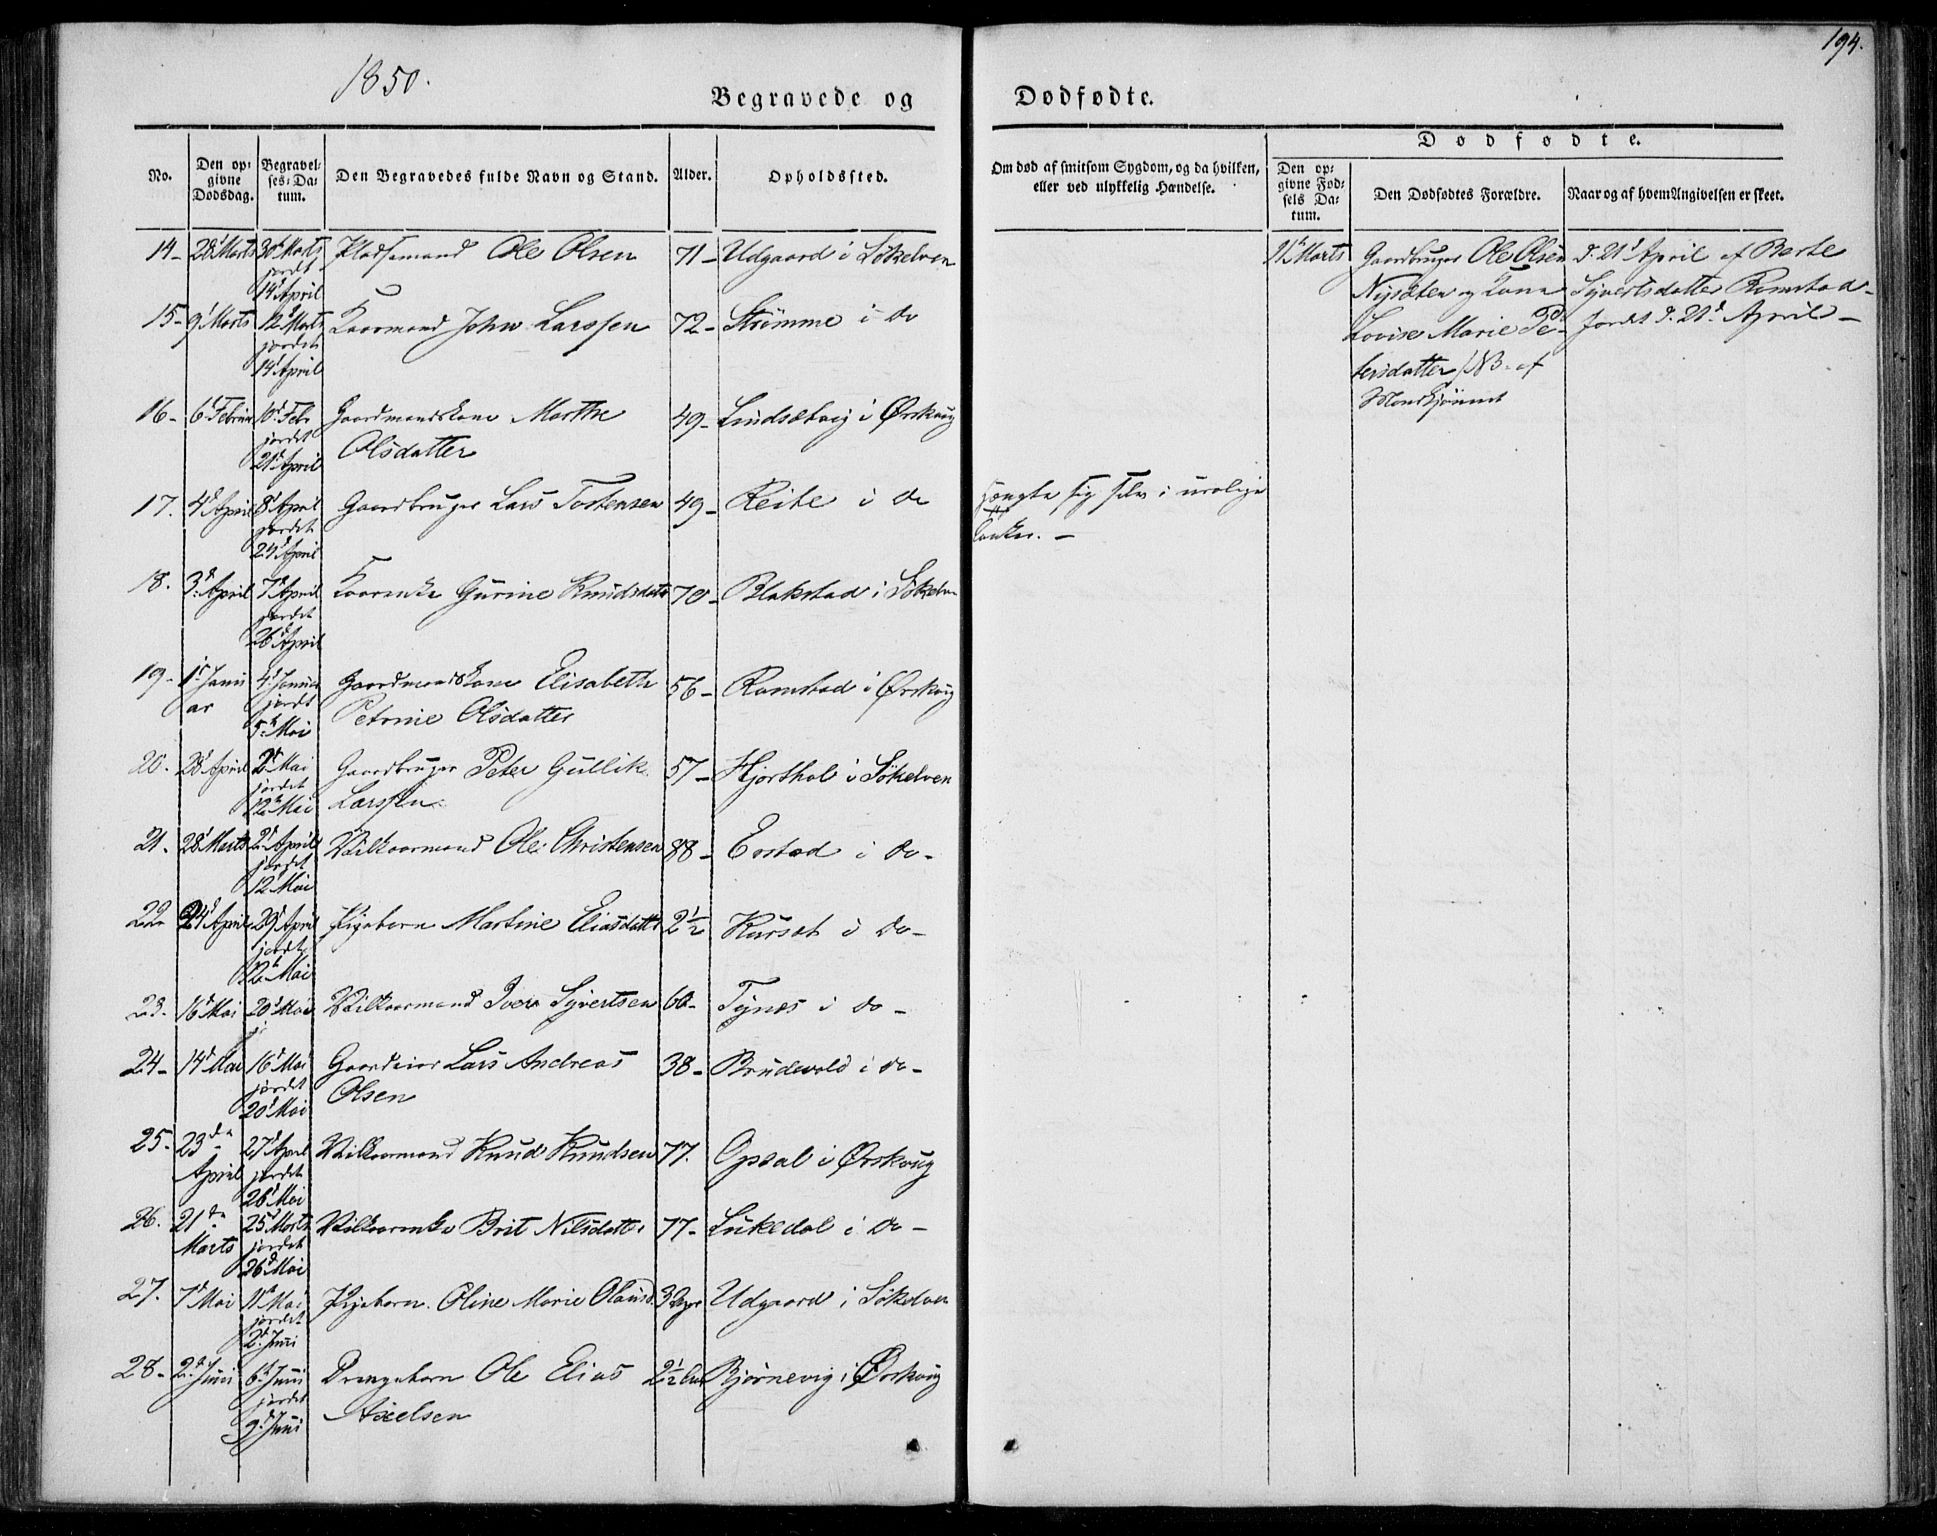 1850.
194.
Begravede og Dødfødte.
Dødfødte.
No.
Den op-
givne
Dødsdag.
Begravel-
ses-Da-
tum.
Den Begravedes fulde Navn og Stand.
Alder.
Opholdssted.
Om død af smitsom Sygdom, og da hvilken,
eller ved ulykkelig Hændelse.
Den op-
givne Fød-
sels Da-
tum.
Den Dødfødtes Forældre.
Naar og af hvem Angivelsen er skeet.
14- 28 Marts 30 Marts Pladsemand Ole Olsen 71- Udgaard i Søkelven
jordet
14 April
15- 9 Marts 12 Marts Kaarmand John Larssen 72- Strømme i do
jordet
14 April
16- 6 Februar 10 Febr Gaardmandskone Marthe 49- Lindsætvig i Ørskoug
jordet Olsdatter
21 April
17. 4 April 8 April Gaardbruger Lars Tostensen 49- Reite i do
jordet
24 April
hængte sig selv i urolige
Tanker. -
18. 3 April 7 April Kaarenke Gurine Knudsdatr 70- Blakstad i Søkelven
jordet
26 April
19- 1 Janu 4 Januar Gaardmandskone Elisabeth 56- Ramstad i Ørskoug
ar jordet Petrine Olsdatter
5 Mai
20. 28 April 2 Mai Gaardbruger Peter Gullik 57- Hjorthol i Søkelven
jordet Larssen
12 Mai
21. 28 Marts 2 April Vilkaarmand Ole Christensen 88- Erstad i do-
jordet
12 Mai
22 24 April 29 April Pigebarn Martine Eliasdatter 2½ Kurset i do-
jordet
12 Mai
23- 16 Mai 20 Mai Vilkaarmand Iver Syvertsen 60- Tynes i do-
24- 14 Mai 16 Mai Gaardeier Lars Andreas 38- Brudevold i do-
jordet Olsen
20 Mai
25- 23de 27 April Vilkaarmand Knud Knudsen 77. Opsal i Ørskoug
April jordet
26 Mai
26. 21de 25 Marts Vilkaarenke Brit Nilsdatter 77- Lukedal i do-
Marts jordet
26 Mai
27. 7 Mai 11 Mai Pigebarn Oline Marie Olausd. 3 Dage Udgaard i Søkelven
jordet
2 Juni
28- 2 Juni 6 Juni Drengebarn Ole Elias 2½ Bjørnevig i Ørskoug
jordet Axelsen
9 Juni
21 Marts Gaardbruger Ole Olsen d. 21 April af Berte
Nysæten og Kone Syvertsdatter Ramstad-
Lovise Marie Pe- Jordet d. 21 April-
tersdatter /NB. af
Mandkjønnet